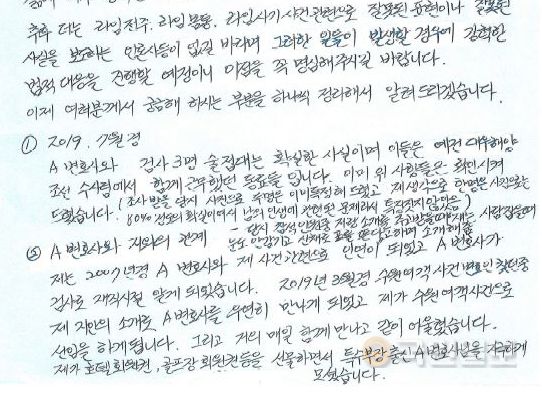 추후 더는 라임전주. 라임몸통. 라임사기사건 관련으로 잘못된 표현이나 잘못된
사실을 보도하는 언론사등이 없길 바라며 그러한 일들이 발생할 경우에 강력한
법적대응을 진행할 예정이니 이점을 꼭 명심해주시길 바랍니다.
이제 여러분께서 궁금해 하시는 부분을 하나씩 정리해서 알려드리겠습니다.
① 2019. 7월경
A 변호사와 검사 3명 술접대는 확실한 사실이며 이들은 예전 대우해양
조선 수사팀에서 함께 근무했던 동료들 입니다. 이미 위 사항들은 확인시켜
드렸습니다. (조사 받을 당시 사진으로 두명은 이미 특정해 드렸고 제 생각으로 한명은 사진으로는
80% 정도의 확실이여서 남의 인생에 관련된 문제라서 특정짓지 않았음)
② A 변호사와 저와의 관계 - 당시 참석인원중 저랑 소개를 주고받을때
저는 2007년경 A 변호사와 제 사건관련으로 인연이 되었고 A 변호사가
검사로 재직시절 알게 되었습니다. 2019년 3월경 수원여객 사건 변호인 찾던중
제 지인의 소개로 A 변호사를 우연히 만나게 되었고 제가 수원여객사건으로
선임을 하게됩니다. 그리고 거의 매일 함께 만나고 같이 어울렸습니다.
제가 호텔회원권, 골프장 회원권등을 선물하면서 특수부장출신 A 변호사님을 지극하게
모셨습니다.